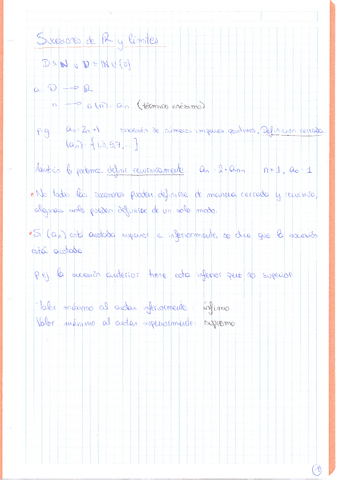 Sucesiones de R y límites
D = N o D = N ∪ {0}
a: D → R
n → a(n) = an (término enésimo)
p.e.g. an = 2n+1 sucesión de números impares positivos. Definición cerrada
(an) = {1,3,5,7,...}
También la podemos definir recursivamente an = 2 + an-1 n ≥ 1, a0 = 1
• No todas las sucesiones pueden definirse de manera cerrada y recursiva,
algunas solo pueden definirse de un solo modo.
• Si (an) está acotada superior e inferiormente, se dice que la sucesión
está acotada
p.e.g. la sucesión anterior tiene cota inferior pero no superior
Valor máximo al acotar inferiormente: ínfimo
Valor mínimo al acotar superiormente: supremo
1